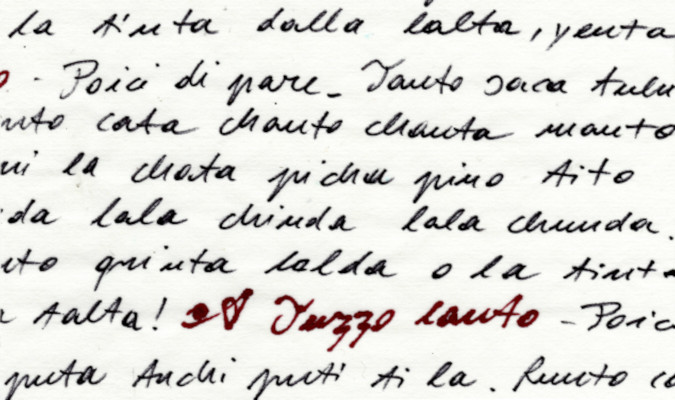 la tinta dalla lalta, yenta
- Poici di pare - Tanto saca tulu
nto cata chanto chanta manto
ni la chata picha pino tito
da lala chinda lala chunda.
nto quinta lalda o la tinta
talta! Tuzzo lanto - Poic
puta Anchi puti ti la. Runto ca